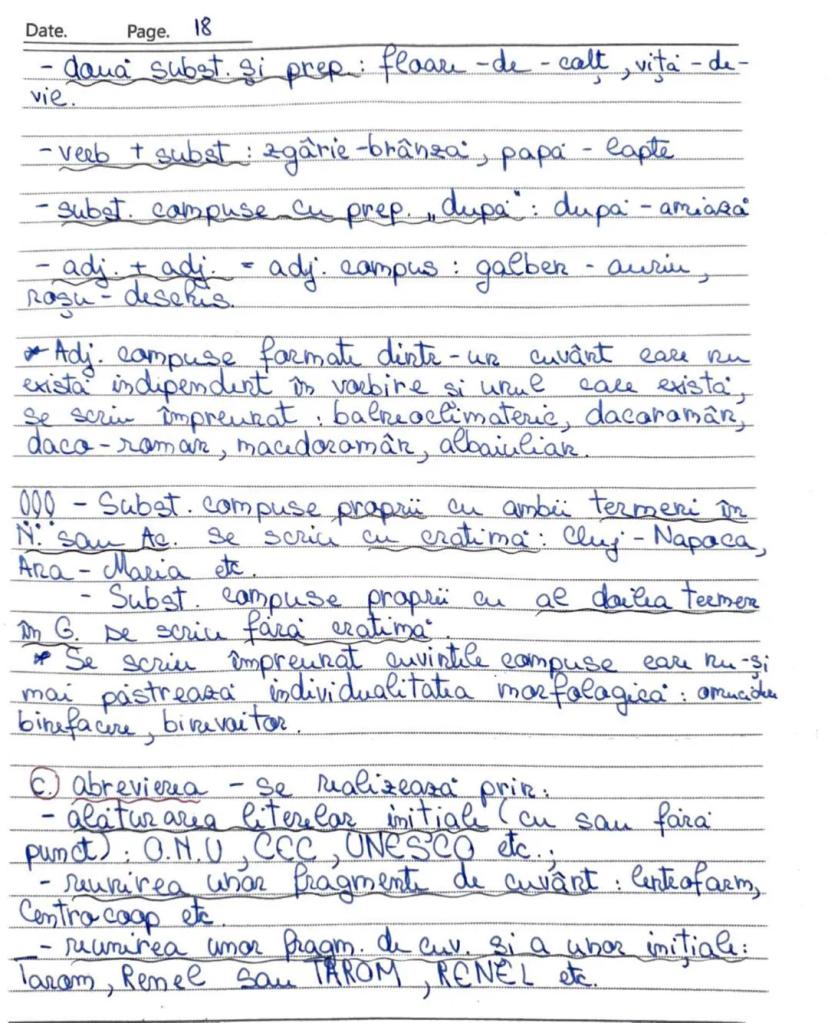 Date. Page. 18
- două subst. și prep.: floare - de - colț, viță - de -
vie.
- verb + subst: zgârie-brânză, papă - lapte
- subst. compuse cu prep. „după": după - amiază
- adj. + adj. = adj. compus: galben - auriu,
roșu - deschis.
* Adj. compuse formate dintr-un cuvânt care nu
există indipendent în vorbire și unul care există,
se scriu împreunat: balneoclimateric, dacoromân,
daco-roman, macedoromân, albaiulian.
000 - Subst. compuse proprii cu ambii termeni în
N. sau Ac. se scriu cu cratimă: Cluj - Napoca,
Ana - Maria etc.
- Subst. compuse proprii cu al doilea termen
în G. se scriu fără cratimă.
* Se scriu împreunat cuvintele compuse care nu-și
mai păstrează individualitatea morfologică:
binefacere, binevoitor.
C. abrevierea - se realizează prin:
- alăturarea literelor inițiale (cu sau fără
punct): O.N.U, CCC, UNESCO etc.;
- reunirea unor fragmente de cuvânt: Centrofarm,
Centrocoop etc.
- reunirea unor fragm. de cuv. și a unor inițiale:
Tarom, Renel sau TAROM, RENEL etc.